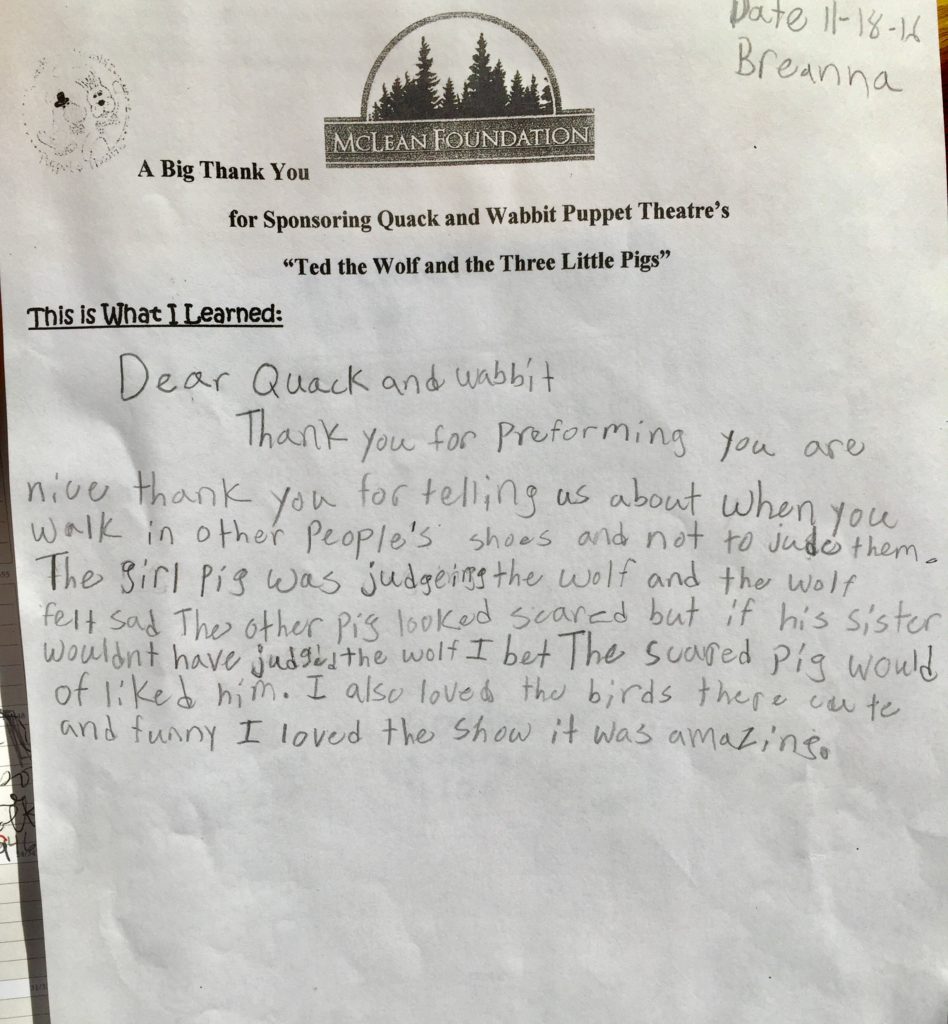 Date 11-18-16
Breanna
McLean Foundation
A Big Thank You
for Sponsoring Quack and Wabbit Puppet Theatre's
"Ted the Wolf and the Three Little Pigs"
This is What I Learned:
Dear Quack and wabbit
Thank you for Preforming you are
nice thank you for telling us about when you
walk in other People's shoes and not to jude them.
The girl Pig was judgeing the wolf and the wolf
felt sad The other Pig looked scared but if his sister
wouldnt have judged the wolf I bet The scared pig would
of liked him. I also loved the birds there cute
and funny I loved the show it was amazing.